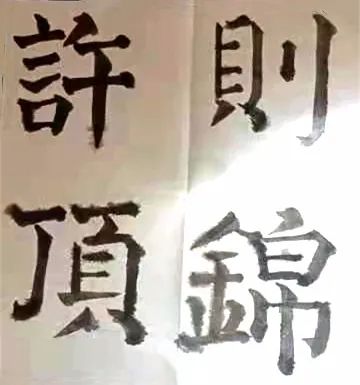 許則
頂錦